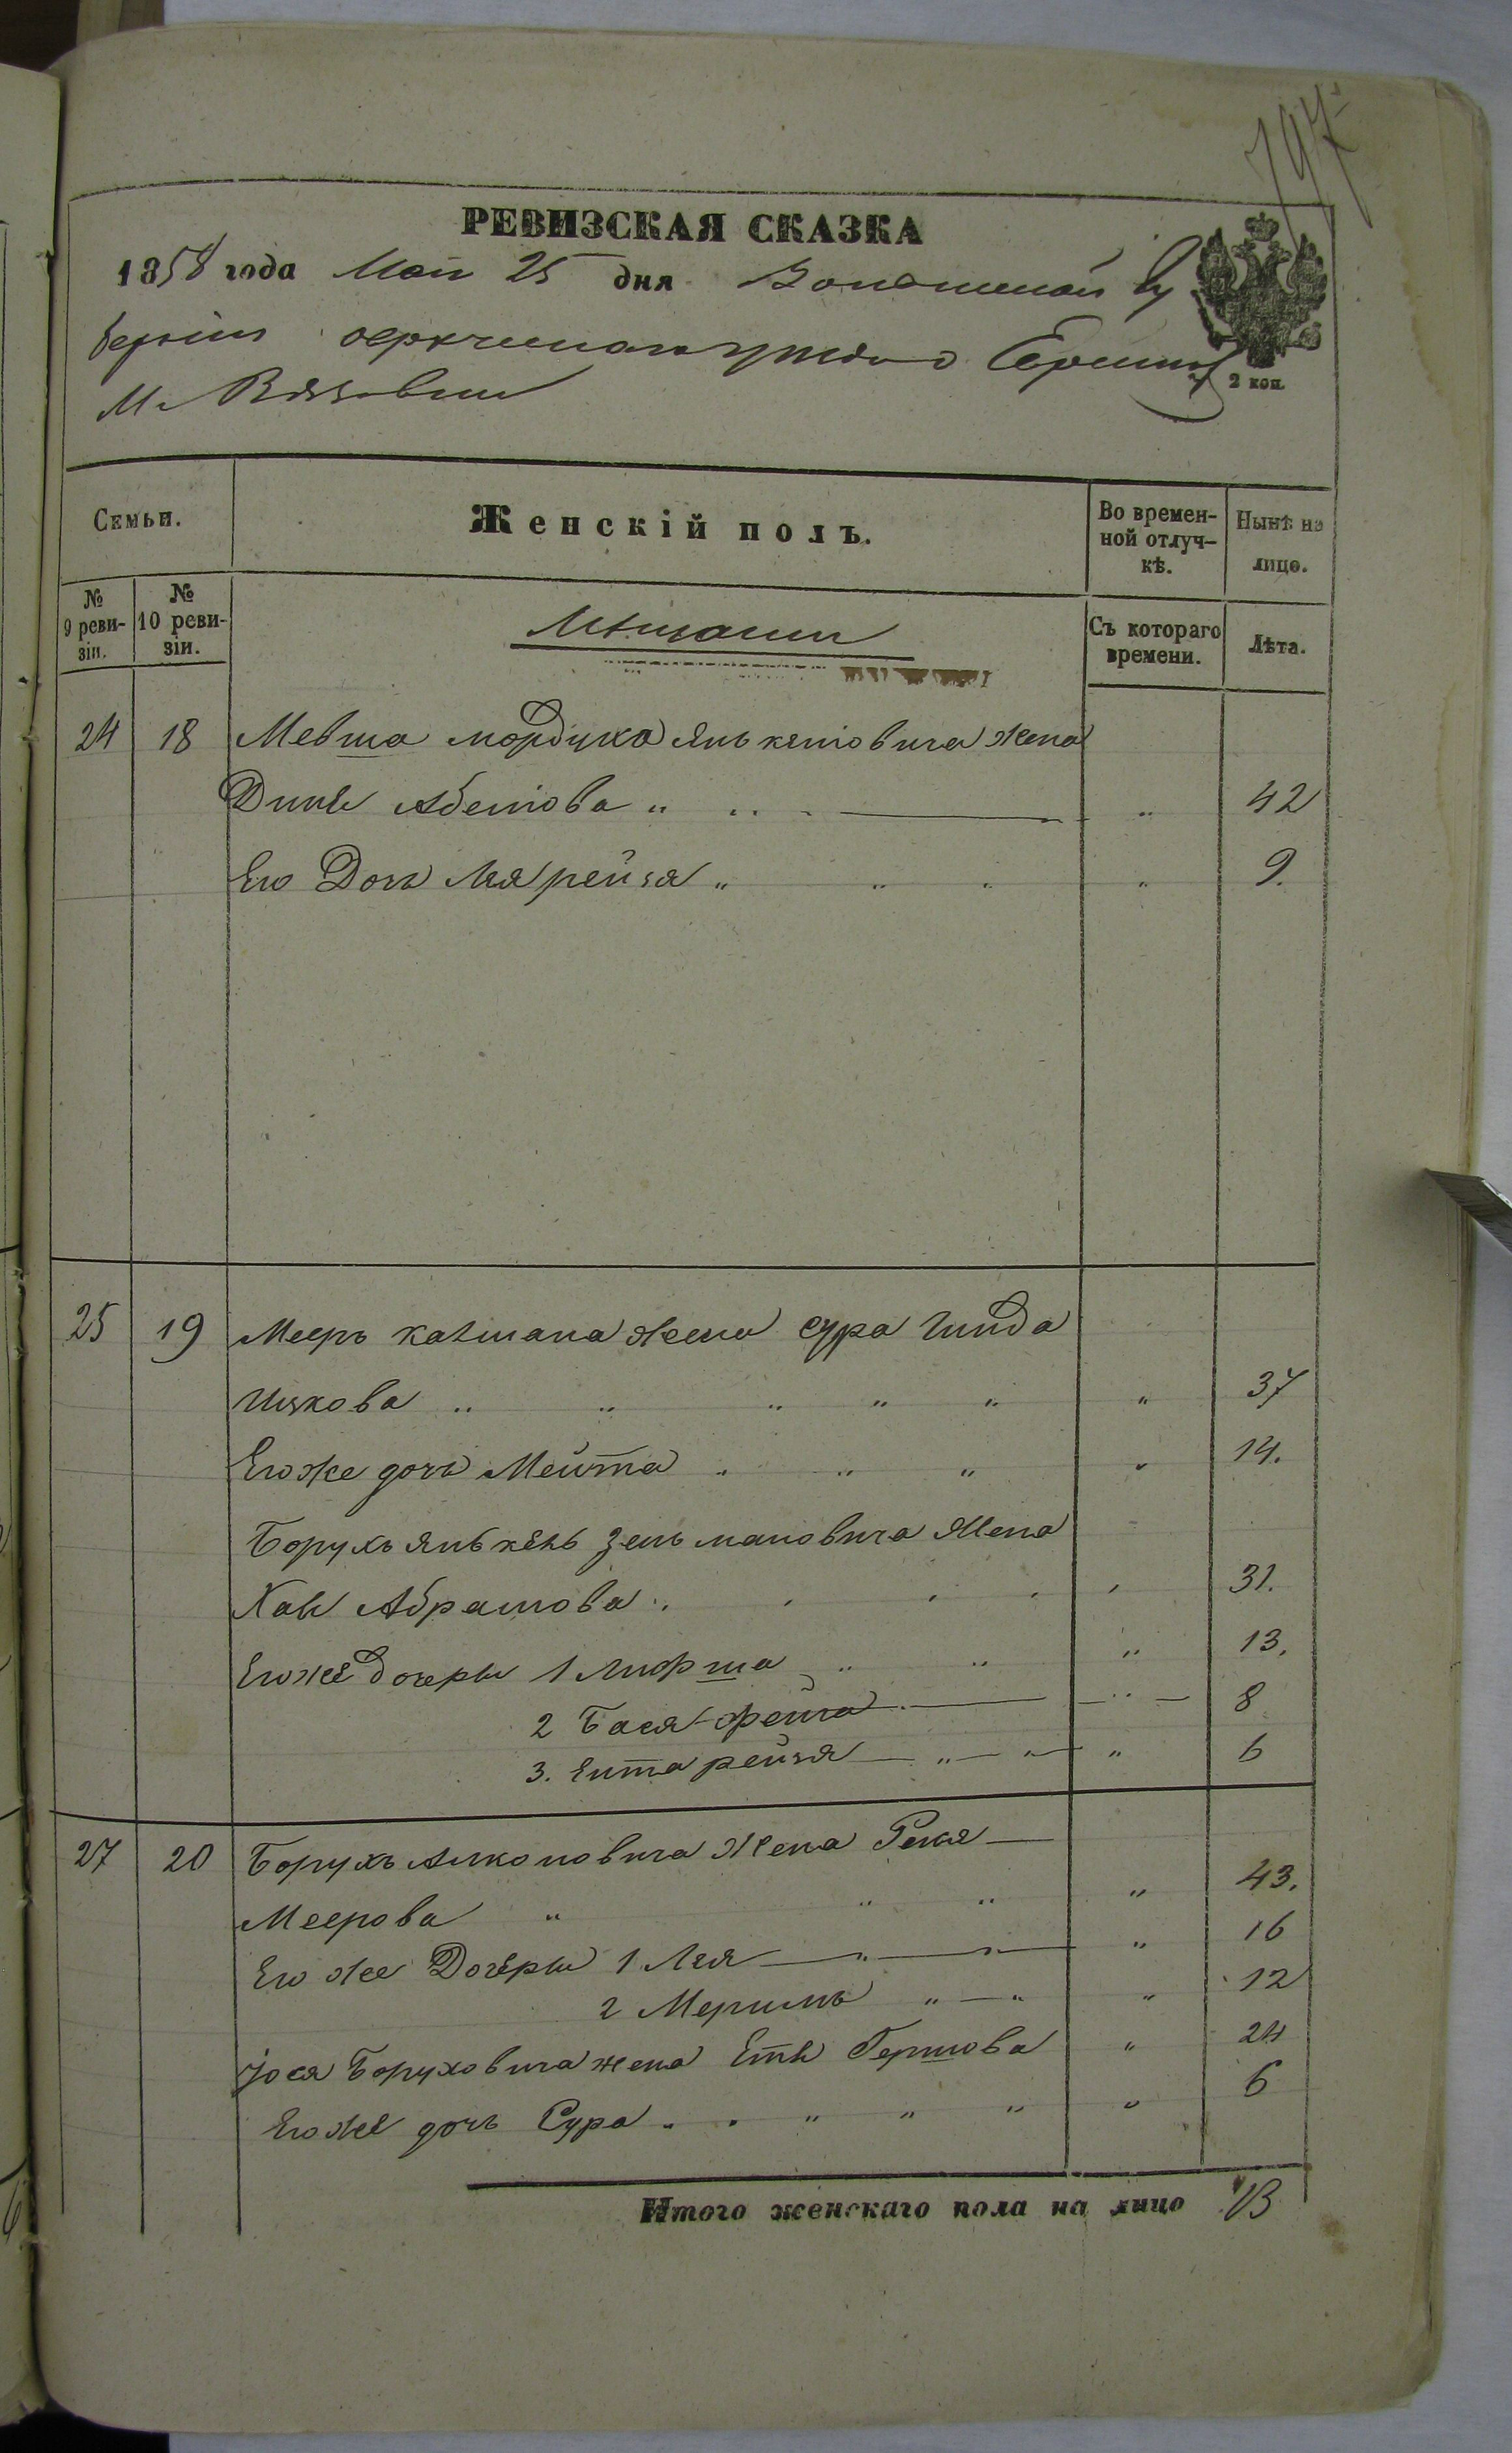 797
РЕВИЗСКАЯ СКАЗКА
1858 года Мая 25 дня Волынской Гу
берніи уезда Еврееи
М.
2 коп.
Семьи. Женскій полъ. Во времен- Нынѣ на
ной отлуч- лицо.
кѣ.
№ № Мѣщани Съ котораго Лѣта.
9 реви- 10 реви- времени.
зіи. зіи.
24 18 Мевша мордука Янькелiовича жена
Динѣ Абелiова „ „ 42
Его Дочь Лея рейзя „ „ „ 9.
25 19 Меерь калмана жена сура гинда
Ицкова „ „ „ „ „ „ 37
Его же дочь Мейта „ „ „ „ 14.
Борухъ янькель зельмановича жена
Хаѣ Абрамова 31.
Его же дочеры 1 Лифша „ „ „ 13.
2 Бася-фейга 8
3. Ента рейзя „ „ „ 6
27 20 Борухъ жена
Меерова „ „ „ „ 43.
Его же Дочеры 1 Лея „ „ „ 16
2 Меримъ „ „ „ 12
Iося Боруховича жена Етѣ Гершова „ 24
Его же дочь Сура „ „ „ „ „ 6
Итого женскаго пола на лицо 13